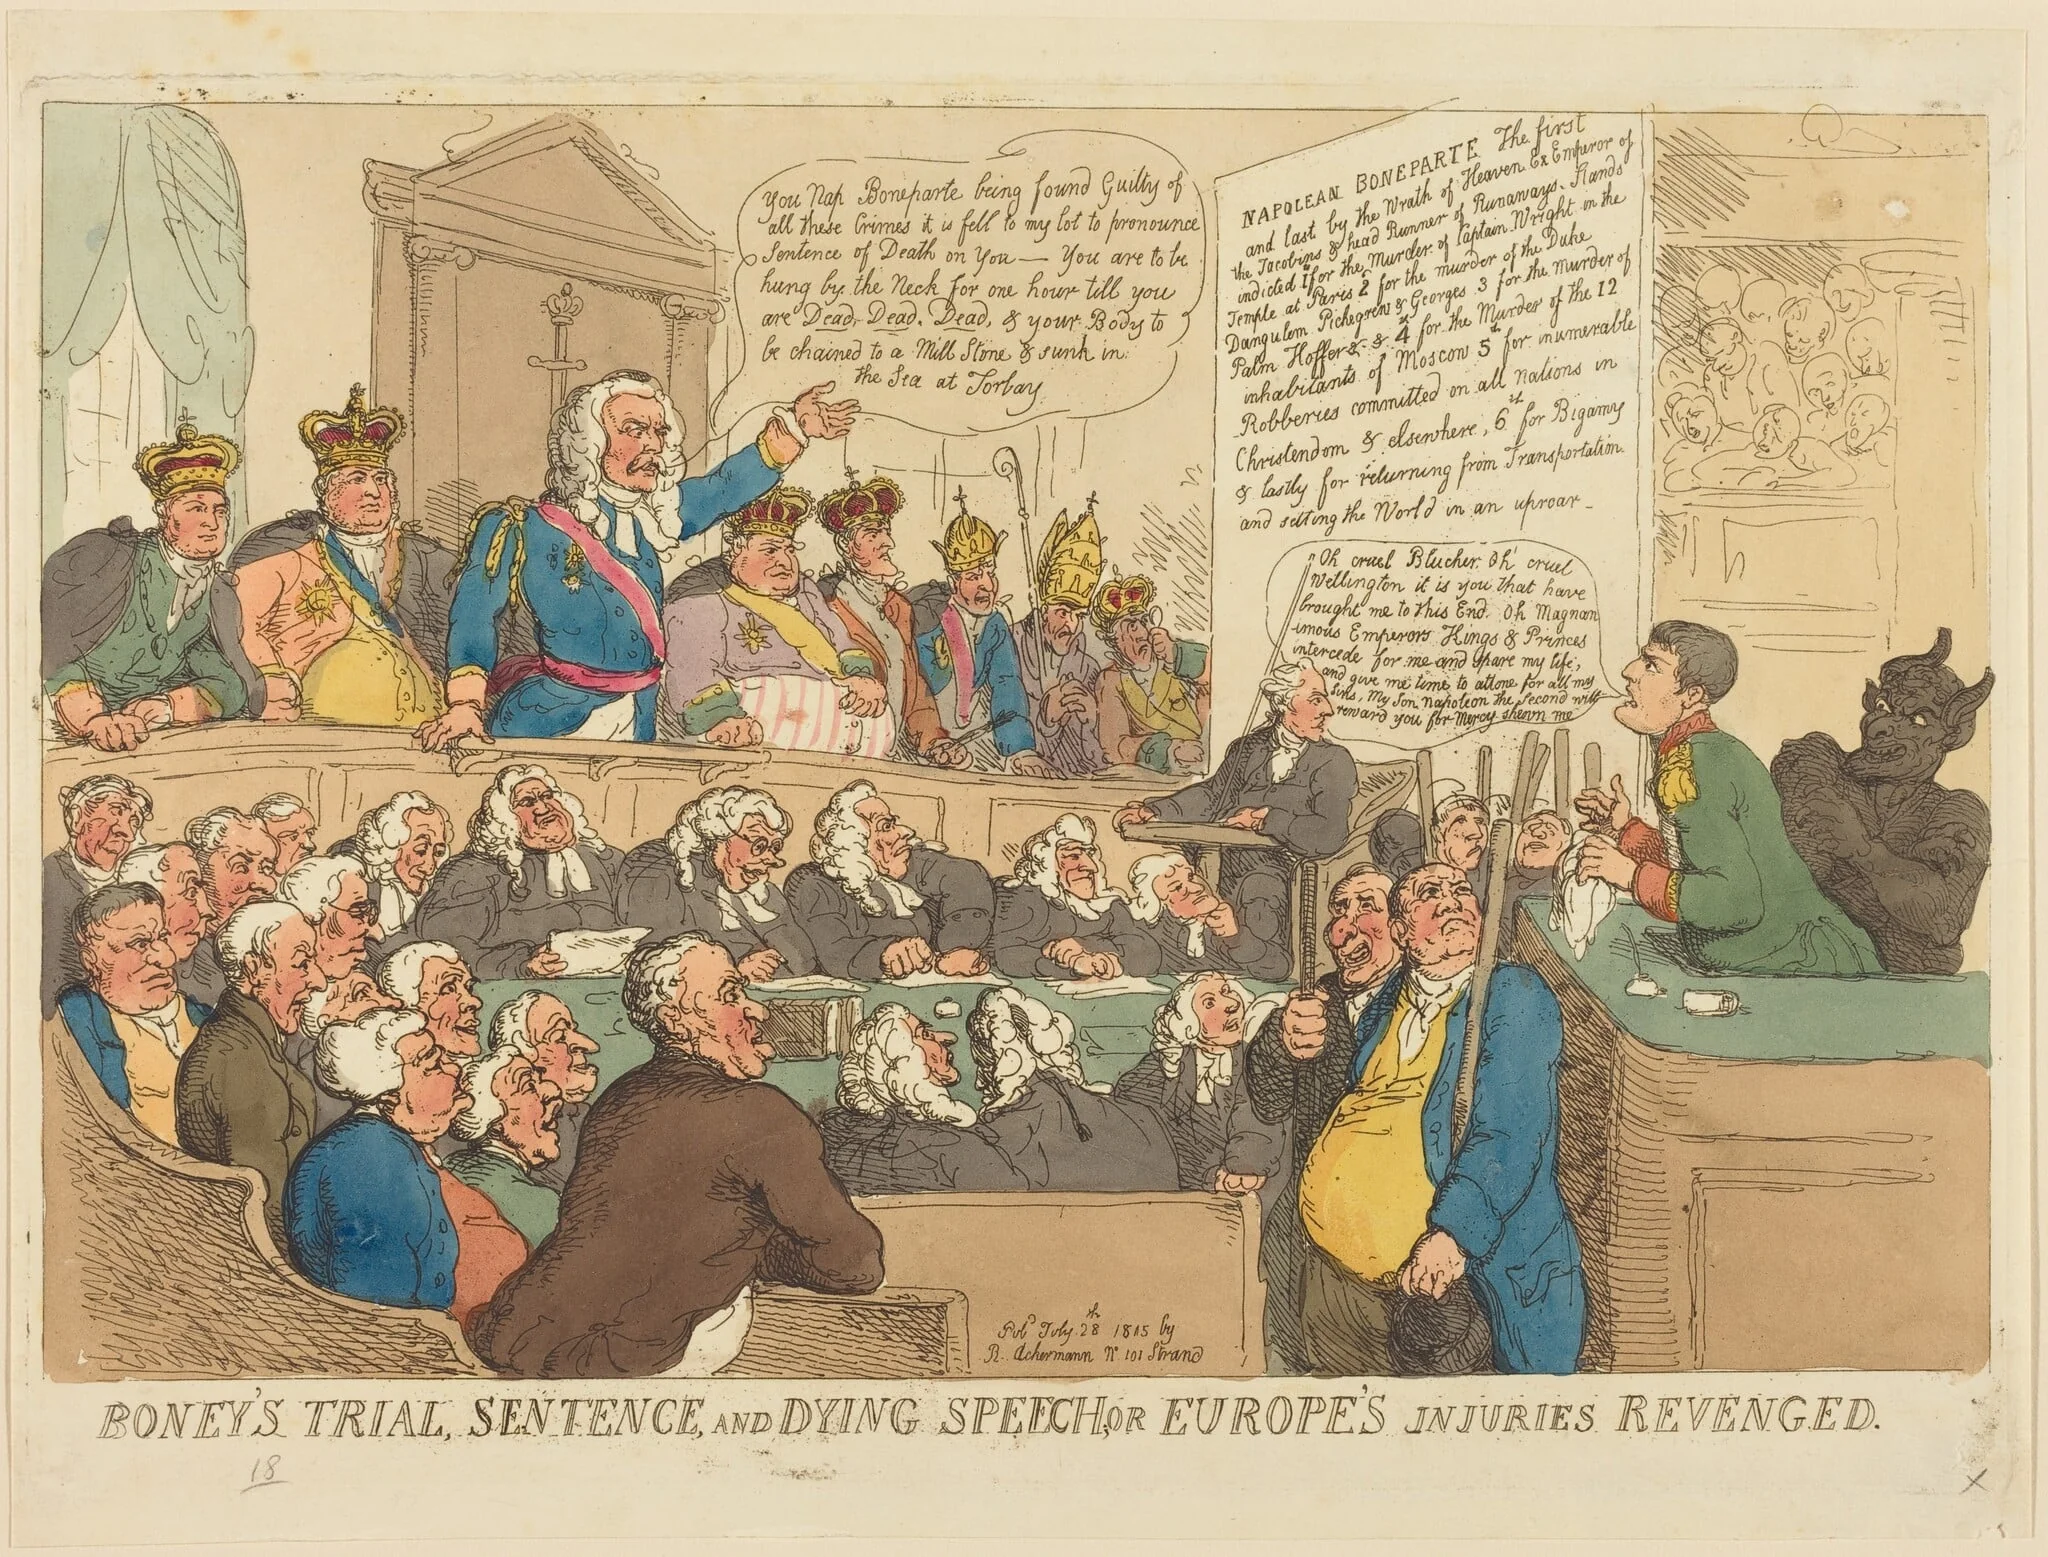 You Nap Boneparte being found Guilty of
all these Crimes it is fell to my lot to pronounce
Sentence of Death on You — You are to be
hung by the Neck for one hour till you
are Dead, Dead, Dead, & your Body to
be chained to a Mill Stone & sunk in
the Sea at Torbay
NAPOLEAN BONEPARTE The first
and last by the Wrath of Heaven Ex Emperor of
the Jacobins & head Runner of Runaways. Stands
indicted 1st for the Murder of Captain Wright in the
Temple at Paris 2 for the murder of the Duke
Dangulem Pichegren & Georges 3 for the Murder of
Palm Hoffer & & 4th for the Murder of the 12
inhabitants of Moscow 5th for inumerable
Robberies committed on all Nations in
Christendom & elsewhere, 6th for Bigamy
& lastly for returning from Transportation.
and setting the World in an uproar —
Oh cruel Blucher. Oh! cruel
Wellington it is you that have
brought me to this End. Oh Magnan
imous Emperors Kings & Princes
intercede for me and spare my life,
and give me time to attone for all my
Sins, My Son Napoleon the Second will
reward you for Mercy shewn me
Pubd July. 28th 1815 by
R. Ackermann No 101 Strand
BONEY'S TRIAL, SENTENCE, AND DYING SPEECH, OR EUROPE'S INJURIES REVENGED.
18